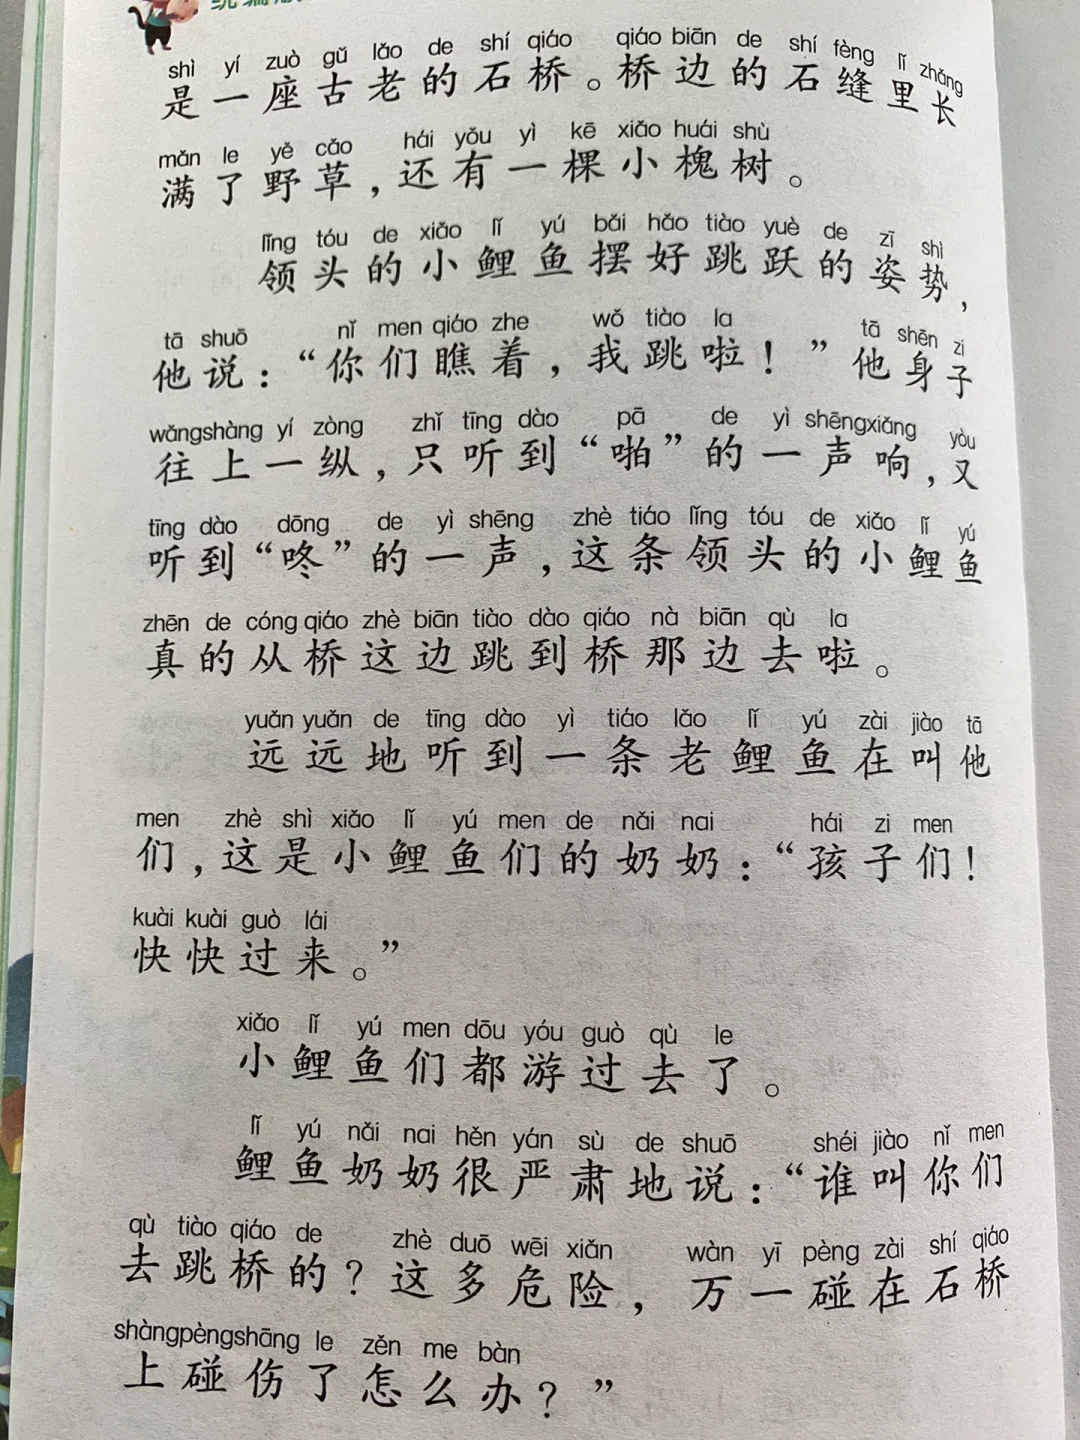 shì yí zuò gǔ lǎo de shí qiáo qiáo biān de shí fèng lǐ zhǎng
是一座古老的石桥。桥边的石缝里长
mǎn le yě cǎo hái yǒu yì kē xiǎo huái shù
满了野草，还有一棵小槐树。
lǐng tóu de xiǎo lǐ yú bǎi hǎo tiào yuè de zī shì
领头的小鲤鱼摆好跳跃的姿势，
tā shuō nǐ men qiáo zhe wǒ tiào la tā shēn zi
他说：“你们瞧着，我跳啦！”他身子
wǎngshàng yí zòng zhǐ tīng dào pā de yì shēngxiǎng yòu
往上一纵，只听到“啪”的一声响，又
tīng dào dōng de yì shēng zhè tiáo lǐng tóu de xiǎo lǐ yú
听到“咚”的一声，这条领头的小鲤鱼
zhēn de cóng qiáo zhè biān tiào dào qiáo nà biān qù la
真的从桥这边跳到桥那边去啦。
yuǎn yuǎn de tīng dào yì tiáo lǎo lǐ yú zài jiào tā
远远地听到一条老鲤鱼在叫他
men zhè shì xiǎo lǐ yú men de nǎi nai hái zi men
们，这是小鲤鱼们的奶奶：“孩子们！
kuài kuài guò lái
快快过来。”
xiǎo lǐ yú men dōu yóu guò qù le
小鲤鱼们都游过去了。
lǐ yú nǎi nai hěn yán sù de shuō shéi jiào nǐ men
鲤鱼奶奶很严肃地说：“谁叫你们
qù tiào qiáo de zhè duō wēi xiǎn wàn yī pèng zài shí qiáo
去跳桥的？这多危险，万一碰在石桥
shàngpèngshāng le zěn me bàn
上碰伤了怎么办？”